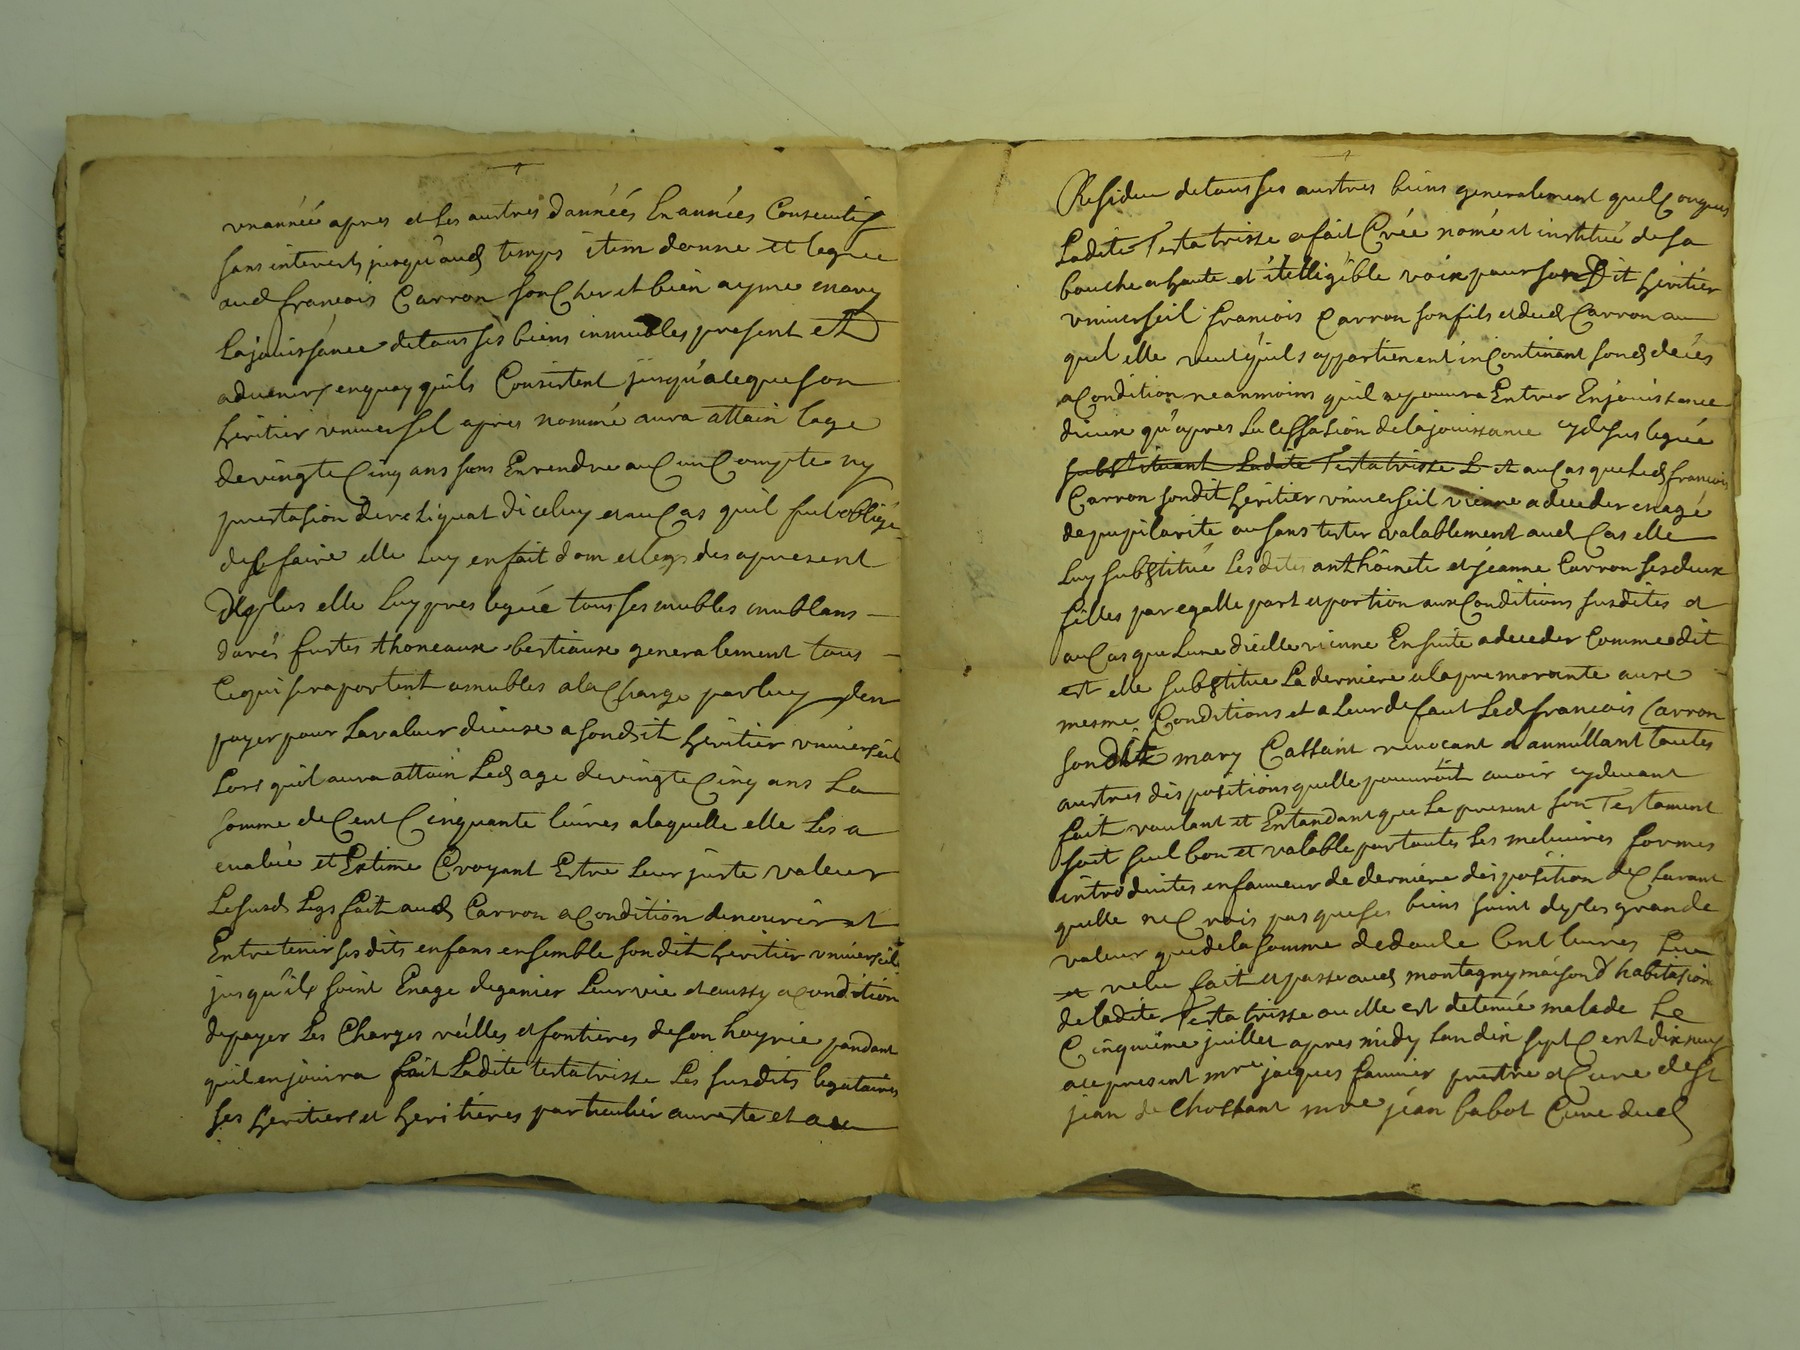 unannéé apres et les austres dannéés En années Consecutif
sans interests jusqu'aud temps item donne et legue
aud francois Carron son Cher et bien ayme mary
la jouissance de tous ses biens inmeubles present et
advenirs en quoy quils Consistent jusqu'a ceque son
heritier universel apres nommé aura attain lage
de vingte Cinq ans sans En rendre auCun Compte ny
prestasion de reliquat diceluy et au Cas quil fut obligé
de se faire elle luy en fait don et legs des apresent
De plus elle luy pres leguée tous ses mubles mublans
darés fustes thoneaux bestiaux generalement tous
Cequi se raportent a mubles ala Charge par luy den
payer pour la valeur diceux a sondit heritier universeil
Lors quil aura attain Led age de vingte Cinq ans La
somme de Cent Cinquante livres a laquelle elle les a
evalué et Estime Croyant Estre leur juste valeur
Le susd Legs fait aud Carron a Condition de nourir et
Entretenir sesdits enfans ensemble sondit heritier universeil
jusqu'ils soint En age de ganier Leur vie et aussy a Condition
de payer les Charges reilles et fontieres de son hoyrie pandant
quil en jouira fait Ladite testatrisse les susdits legataires
ses heritiers et heritieres particulier au reste et au
Resideu de tous ses austres biens generalement quelConques
Ladite Testatrisse a fait Créé nomé et institué de sa
bouche a haute et itelligible voix pour son Dit heritier
universeil francois Carron son fils et dud Carron au
quel elle veut quils appartienent inContinant sond deces
a Condition neanmoins quil ne pourra Entrer En jouissance
diceux qu'apres la cessasion de la jouissance cydesus leguée
substituant Ladite Testatrisse L et au Cas que Led francois
Carron sondit heritier universeil vienne a deceder en age
de pupilarite ou sans tester valablement aud Cas elle
Luy substitué Lesdites anthoinete et jeanne Carron ses deux
filles par egalle part et portion aux Conditions susdites et
au Cas que Lune dicelle vienne En suite a deceder Comme dit
est elle substitue La derniere a la premorante aux
mesme Conditions et a Leur defaut Led francois Carron
son dit mary Cassant revocant et annullant toutes
austres dispositions quelle pouuroit avoir cydevant
fait voulant et Entandant que Le present son Testament
soit seul bon et valable par toutes les melieures formes
introduites en faveur de derniere disposition deClarant
quelle ne Crois pas que ses biens soint de plus grande
valeur que de la somme de doule Cent livres Lue
et relue fait et passe aud montagny maison d'habitasion
de ladite Testatrisse ou elle est detenué malade Le
Cinquieme juillet apres midy Lan dix sept Cent dix neuf
a ce present mre jacques fannier prestre et Cure de st
jean de Chossant mre jean babot Cure dud